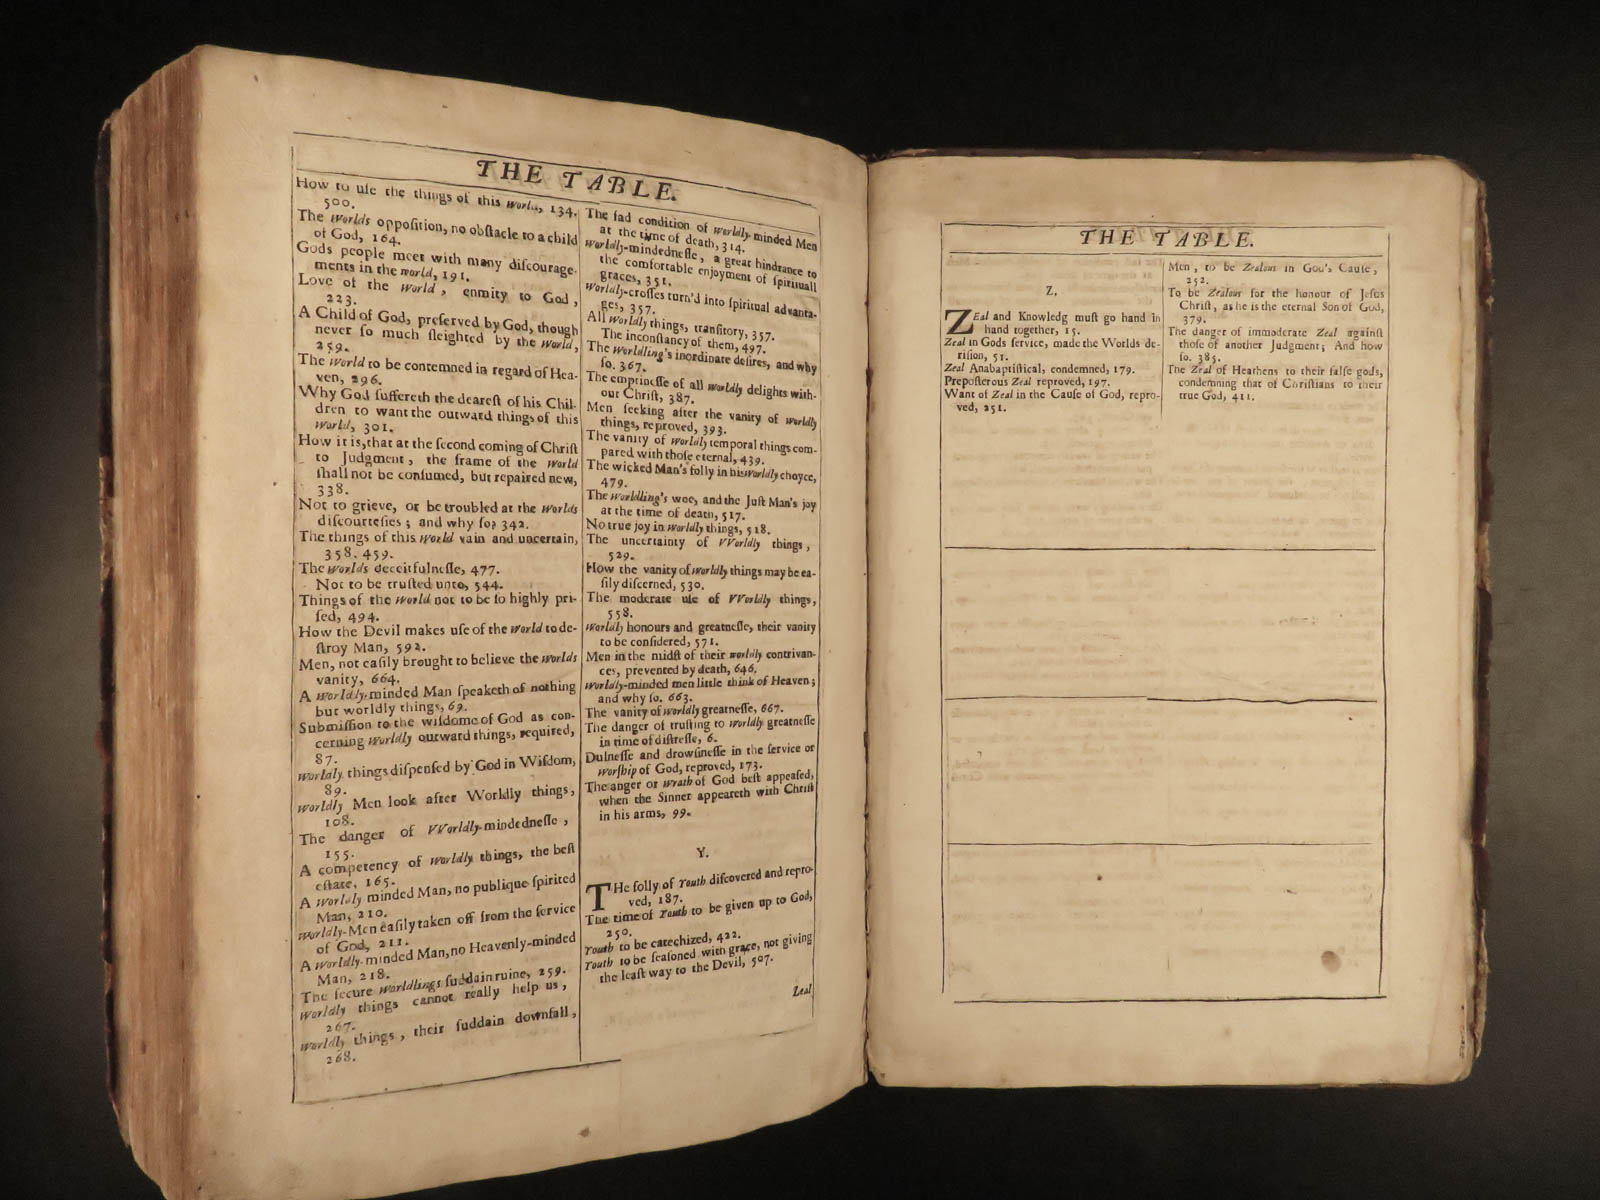 THE TABLE.
How to uſe the things of this World, 134.
500.
The Worlds oppoſition, no obſtacle to a child
of God, 164.
Gods people meet with many diſcourage-
ments in the world, 191.
Love of the World, enmity to God,
223.
A Child of God, preſerved by God, though
never ſo much ſleighted by the World,
259.
The World to be contemned in regard of Hea-
ven, 296.
Why God ſuffereth the deareſt of his Chil-
dren to want the outward things of this
World, 301.
How it is, that at the ſecond coming of Chriſt
to Judgment, the frame of the World
ſhall not be conſumed, but repaired new,
338.
Not to grieve, or be troubled at the Worlds
diſcourteſies; and why ſo? 342.
The things of this World vain and uncertain,
358. 459.
The Worlds deceitfulneſſe, 477.
Not to be truſted unto, 544.
Things of the World not to be ſo highly pri-
ſed, 494.
How the Devil makes uſe of the World to de-
ſtroy Man, 592.
Men, not eaſily brought to believe the Worlds
vanity, 664.
A Worldly-minded Man ſpeaketh of nothing
but worldly things, 69.
Submiſſion to the wiſdome of God as con-
cerning Worldly outward things, required,
87.
Worldaly things diſpenſed by God in Wiſdom,
89.
Worldly Men look after Worldly things,
108.
The danger of VVorldly-mindedneſſe,
155.
A competency of Worldly things, the beſt
eſtate, 165.
A Worldly minded Man, no publique ſpirited
Man, 210.
Worldly-Men eaſily taken off from the ſervice
of God, 211.
A Worldly-minded Man, no Heavenly-minded
Man, 218.
The ſecure Worldlings ſuddain ruine, 259.
Worldly things cannot really help us,
267.
Worldly things, their ſuddain downfall,
268.
The ſad condition of Worldly-minded Men
at the time of death, 314.
Worldly-mindedneſſe, a great hindrance to
the comfortable enjoyment of ſpirituall
graces, 351.
Worldly-croſſes turn'd into ſpiritual advanta-
ges, 357.
All Worldly things, tranſitory, 357.
The inconſtancy of them, 497.
The Worldling's inordinate deſires, and why
ſo. 367.
The emptineſſe of all Worldly delights with-
out Chriſt, 387.
Men ſeeking after the vanity of Worldly
things, reproved, 393.
The vanity of Worldly temporal things com-
pared with thoſe eternal, 439.
The wicked Man's folly in his Worldly choyce,
479.
The Worldling's woe, and the Juſt Man's joy
at the time of death, 517.
No true joy in Worldly things, 518.
The uncertainty of VVorldly things,
529.
How the vanity of Worldly things may be ea-
ſily diſcerned, 530.
The moderate uſe of VVorldly things,
558.
Worldly honours and greatneſſe, their vanity
to be conſidered, 571.
Men in the midſt of their worldly contrivan-
ces, prevented by death, 646.
Worldly-minded men little think of Heaven;
and why ſo. 663.
The vanity of Worldly greatneſſe, 667.
The danger of truſting to Worldly greatneſſe
in time of diſtreſſe, 6.
Dulneſſe and drowſineſſe in the ſervice or
Worſhip of God, reproved, 173.
The anger or Wrath of God beſt appeaſed,
when the Sinner appeareth with Chriſt
in his arms, 99.
Y.
THe folly of Youth diſcovered and repro-
ved, 187.
The time of Youth to be given up to God,
250.
Youth to be catechized, 422.
Youth to be ſeaſoned with grace, not giving
the leaſt way to the Devil, 507.
Zeal
THE TABLE.
Z.
ZEal and Knowledg muſt go hand in
hand together, 15.
Zeal in Gods ſervice, made the Worlds de-
riſion, 51.
Zeal Anabaptiſtical, condemned, 179.
Prepoſterous Zeal reproved, 197.
Want of Zeal in the Cauſe of God, repro-
ved, 251.
Men, to be Zealous in God's Cauſe,
252.
To be Zealous for the honour of Jeſus
Chriſt, as he is the eternal Son of God,
379.
The danger of immoderate Zeal againſt
thoſe of another Judgment; And how
ſo. 385.
The Zeal of Heathens to their falſe gods,
condemning that of Chriſtians to their
true God, 411.